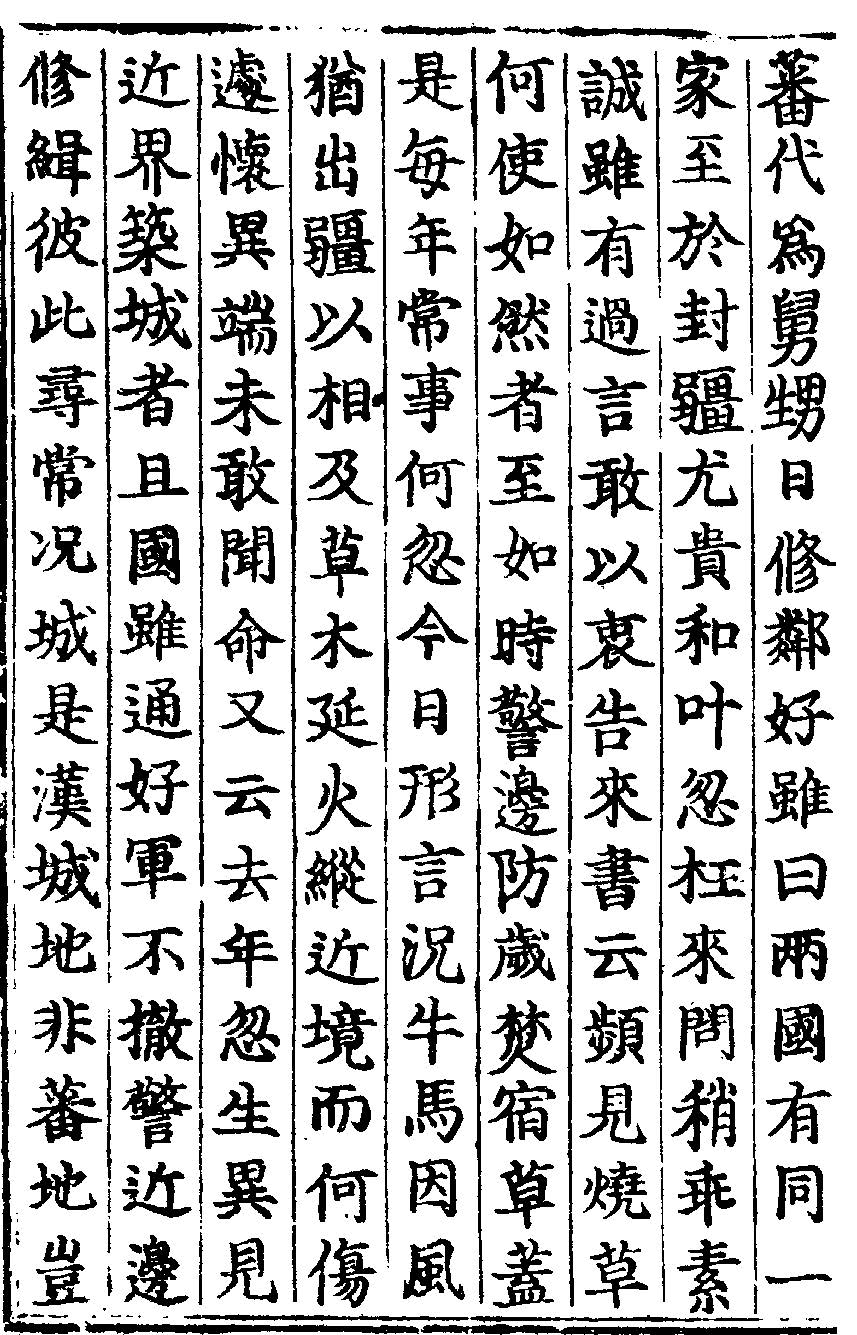 蕃代爲舅甥日修鄰好雖曰兩國有同一
家至於封疆尤貴和叶忽枉來問稍乖素
誠雖有過言敢以衷告來書云頻見燒草
何使如然者至如時警邊防歲焚宿草蓋
是每年常事何忽今日形言況牛馬因風
猶出疆以相及草木延火縱近境而何傷
遽懷異端未敢聞命又云去年忽生異見
近界築城者且國雖通好軍不撤警近邊
修緝彼此尋常況城是漢城地非蕃地豈